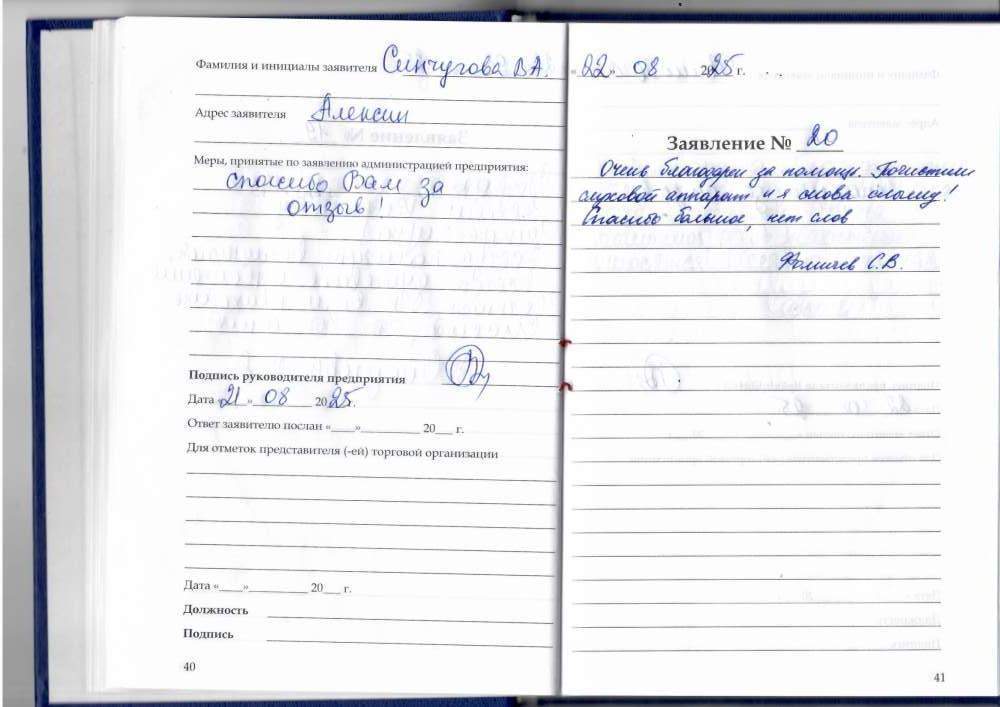 Фамилия и инициалы заявителя Синчугова В.А.
Адрес заявителя Алексин
Меры, принятые по заявлению администрацией предприятия:
Спасибо Вам за
отзыв!
Подпись руководителя предприятия
Дата «21» 08 2025.
Ответ заявителю послан «___»__________ 20___ г.
Для отметок представителя (-ей) торговой организации
Дата «____»__________ 20___ г.
Должность
Подпись
40
«22» 08 2025 г.
Заявление № 20
Очень благодарен за помощь. Почистили
слуховой аппарат и я снова слышу!
Спасибо большое, нет слов
Фомичев С.В.
41